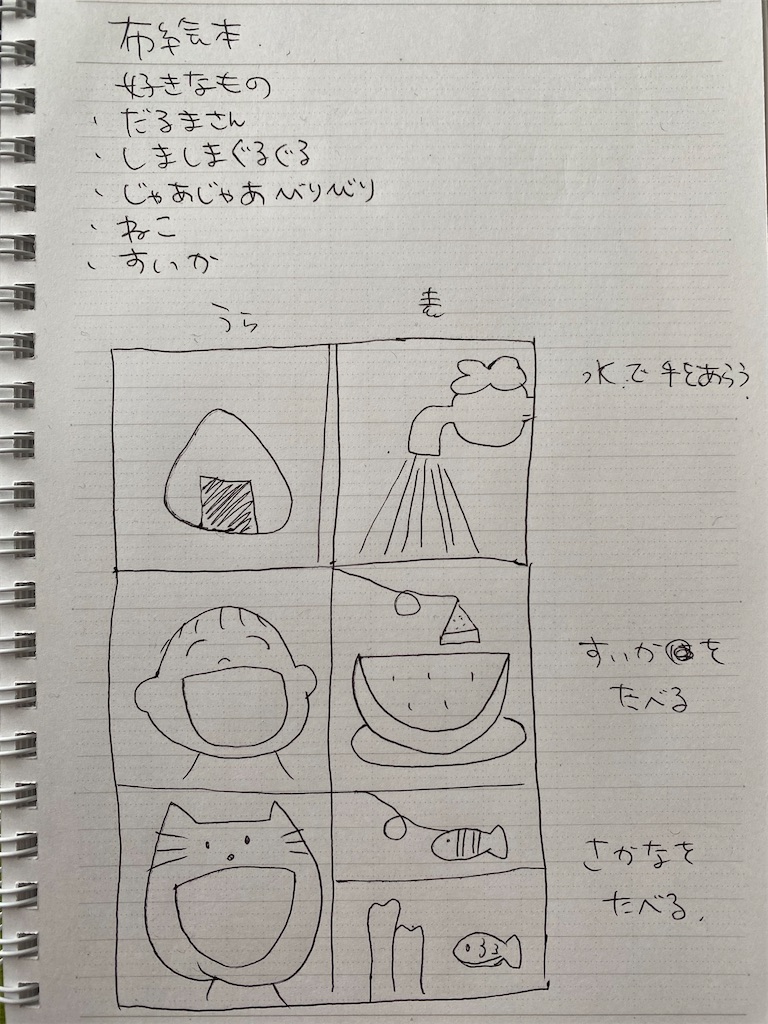 布絵本
好きなもの
・だるまさん
・しましまぐるぐる
・じゃあじゃあびりびり
・ねこ
・すいか
うら
表
水で手をあらう
すいかを
たべる
さかなを
たべる.